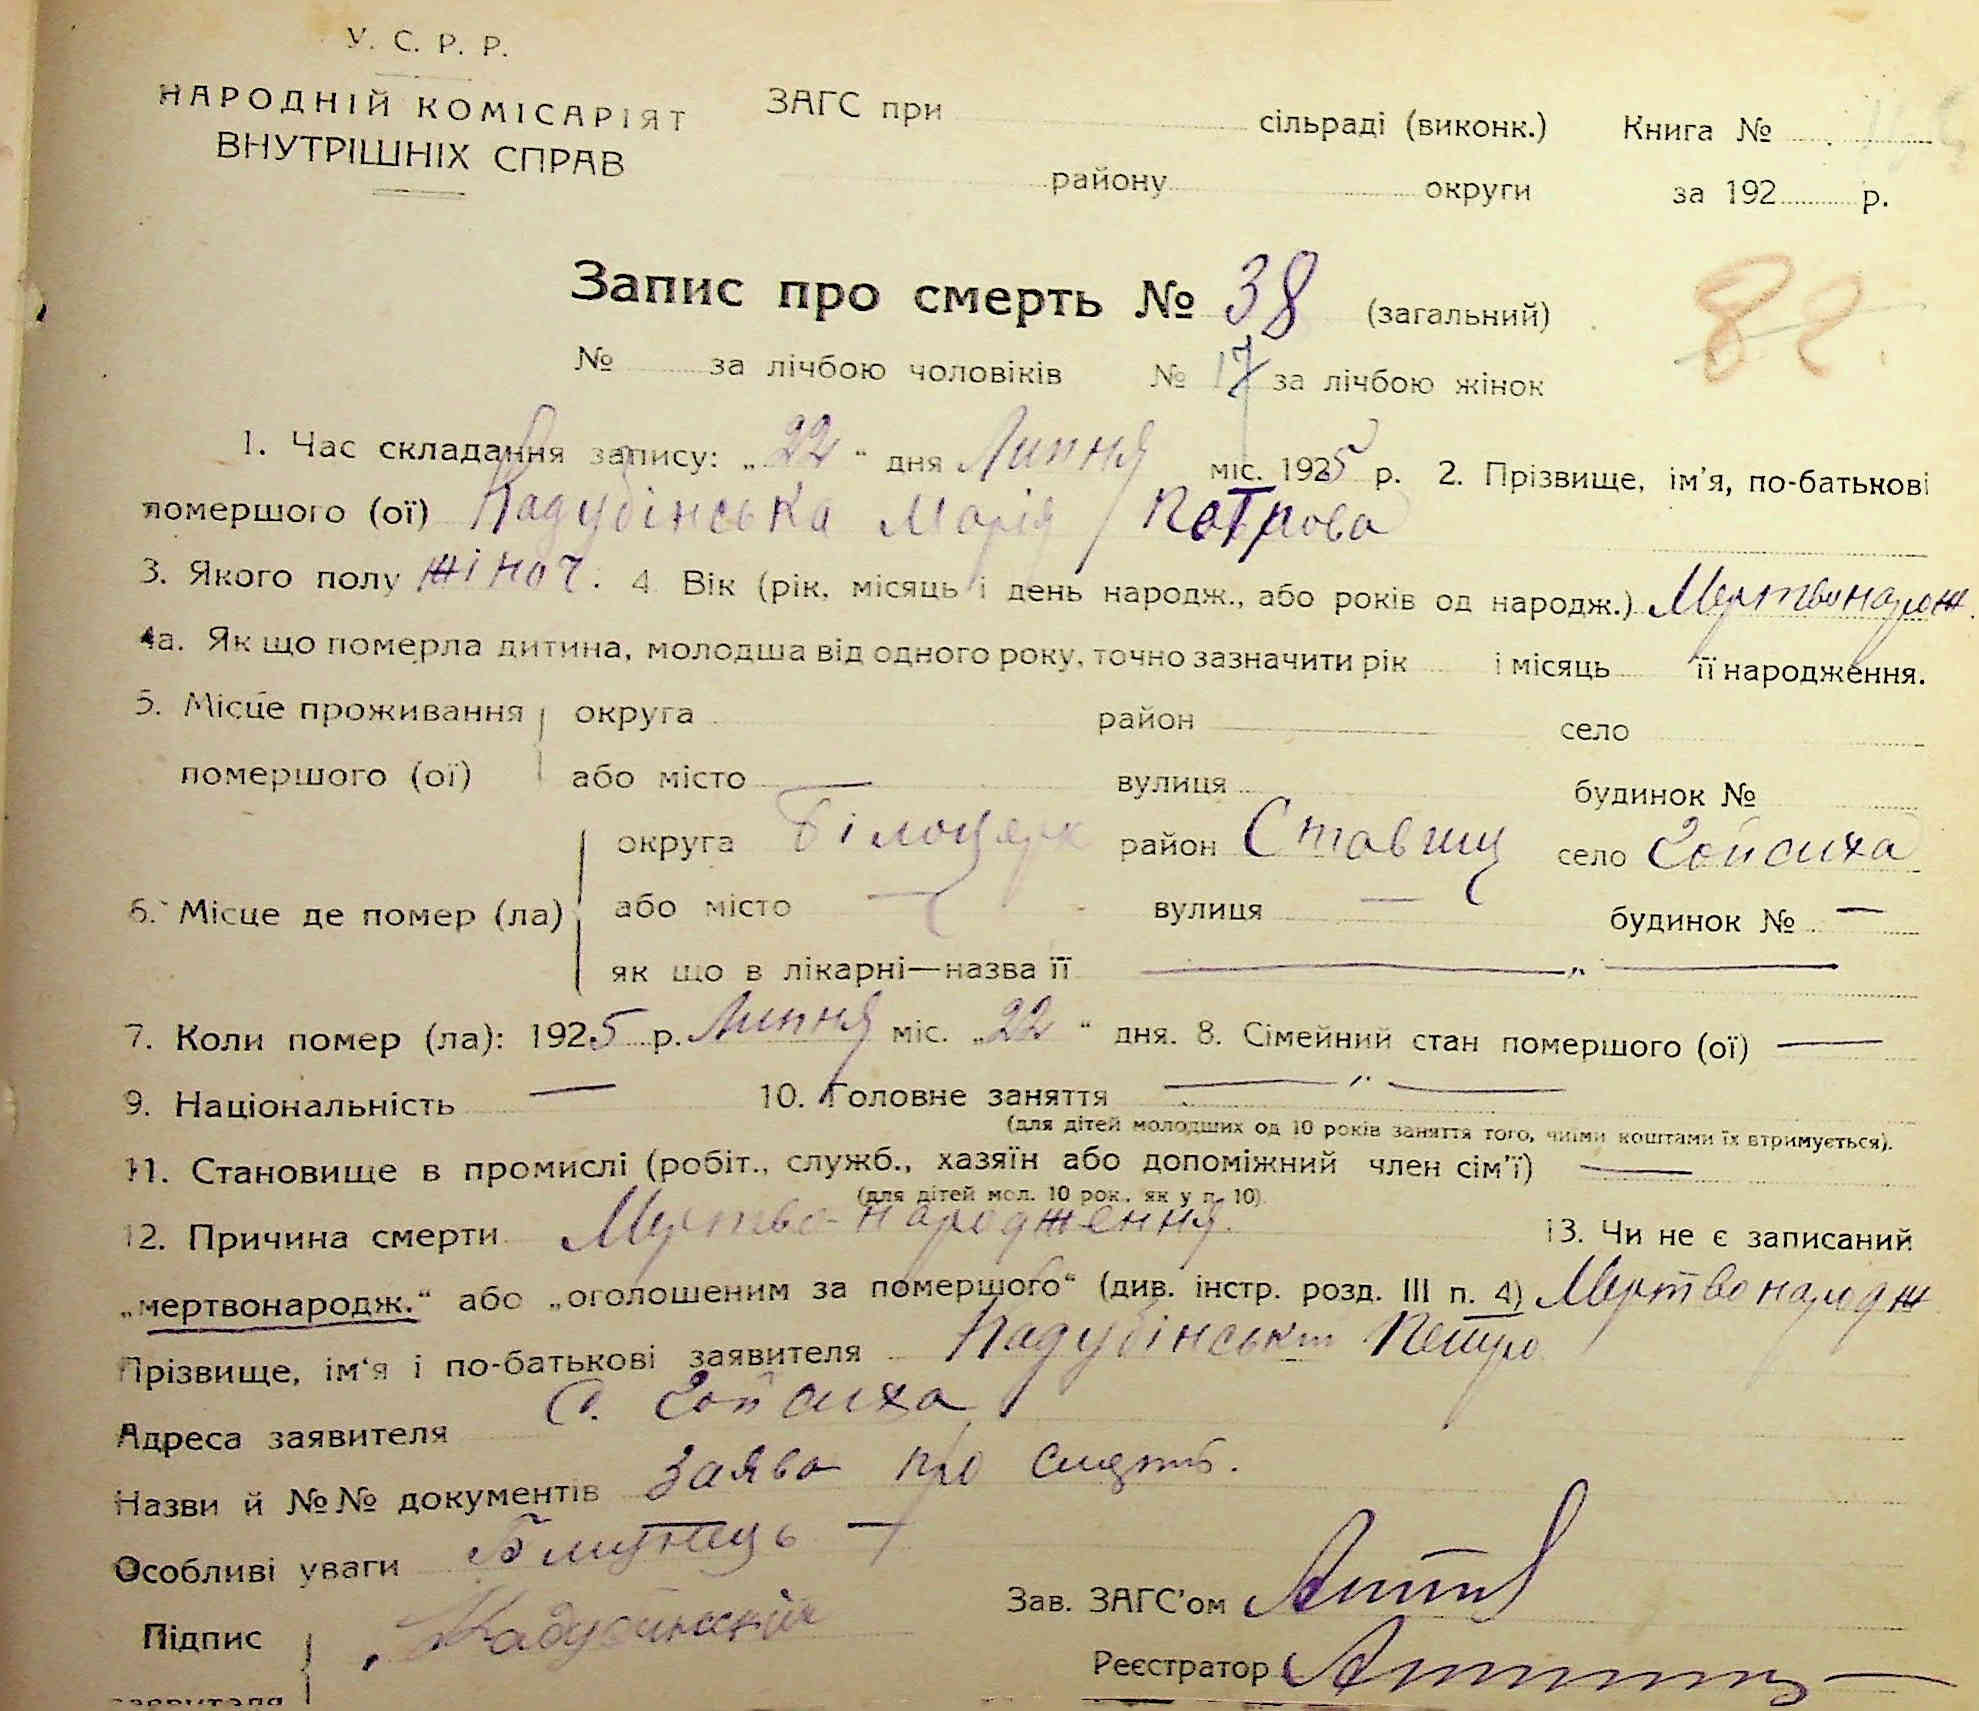 У. С. Р. Р.
НАРОДНІЙ КОМІСАРІЯТ
ВНУТРІШНІХ СПРАВ
ЗАГС при сільраді (виконк.) Книга №
району округи за 192 р.
Запис про смерть № 38 (загальний)
82.
№ за лічбою чоловіків № 17 за лічбою жінок
1. Час складання запису: „22“ дня Липня міс. 1925 р. 2. Прізвище, ім'я, по-батькові
помершого (ої) Кадубінська Марія Петрова
3. Якого полу жіноч. 4 Вік (рік, місяць і день народж., або років од народж.) Мертвонарож.
4а. Як що померла дитина, молодша від одного року, точно зазначити рік і місяць її народження.
5. Місце проживання округа район село
помершого (ої) або місто — вулиця будинок №
округа Білоцерк район Ставищ село Гойсиха
6. Місце де помер (ла) або місто — вулиця — будинок № —
як що в лікарні—назва її — „ —
7. Коли помер (ла): 1925 р. Липня міс. „22“ дня. 8. Сімейний стан помершого (ої) —
9. Національність — 10. Головне заняття — „ —
(для дітей молодших од 10 років заняття того, чиїми коштами їх втримується).
11. Становище в промислі (робіт., служб., хазяїн або допоміжний член сім'ї) —
(для дітей мол. 10 рок., як у п. 10).
12. Причина смерти Мертво-народження. 13. Чи не є записаний
„мертвонародж.“ або „оголошеним за помершого“ (див. інстр. розд. III п. 4) Мертвонародж
Прізвище, ім'я і по-батькові заявителя Кадубінськи Петро
Адреса заявителя с. Гойсиха
Назви й №№ документів Заява про смерть.
Особливі уваги Близнець —
Підпис Кадубинский
заявителя
Зав. ЗАГС'ом
Реєстратор